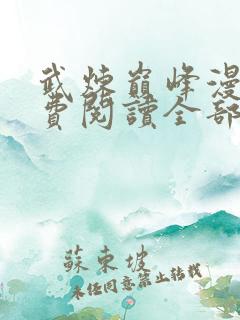 武煉巔峰漫
費閱讀全部
蘇東坡
未经同意禁止转载